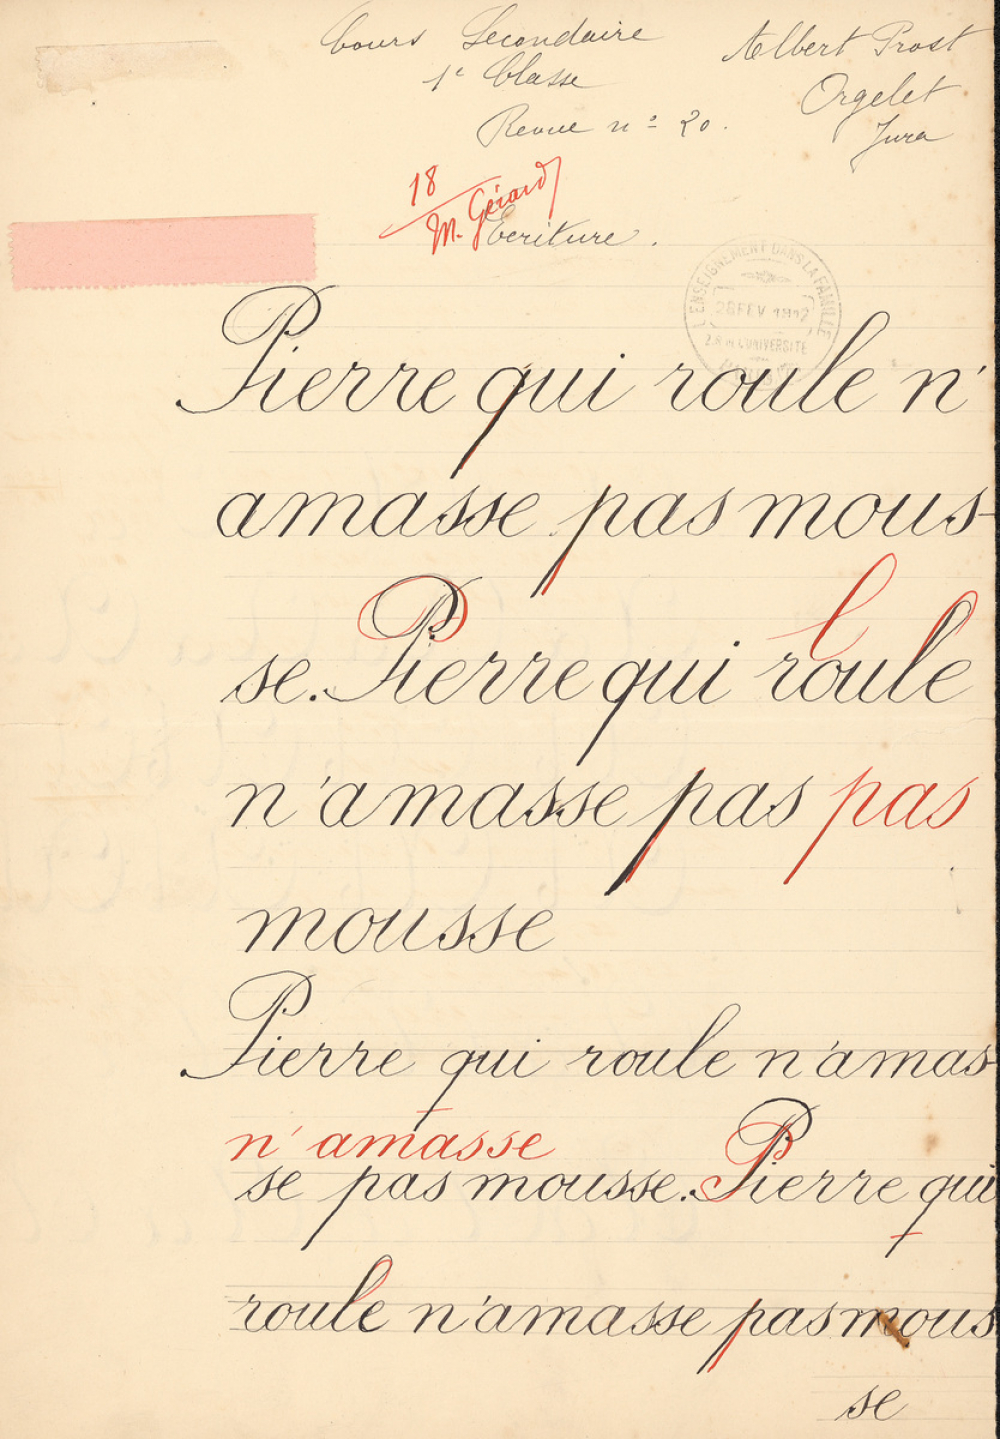 Cours Secondaire
1e Classe
Revue nº 20.
Albert Prost
Orgelet
Jura
18
M. Gérard
Écriture.
L'ENSEIGNEMENT DANS LA FAMILLE
28 FEV 1912
Pierre qui roule n'
amasse pas mous-
se. Pierre qui roule
l
n'amasse pas pas
mousse
Pierre qui roule n'amas-
n'amasse
se pas mousse. Pierre qui
roule n'amasse pas mous
se